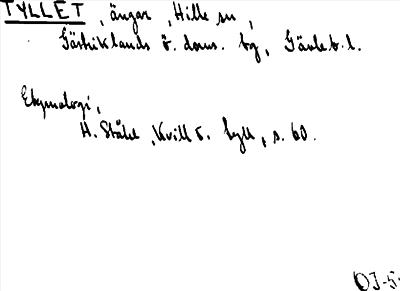 TYLLET, ängar, Hille sn,
Gästriklands ö. doms. tg, Gävleb. l.
Etymologi,
H. Ståhl, Kvill o. tyll, s. 60.
OJ-5